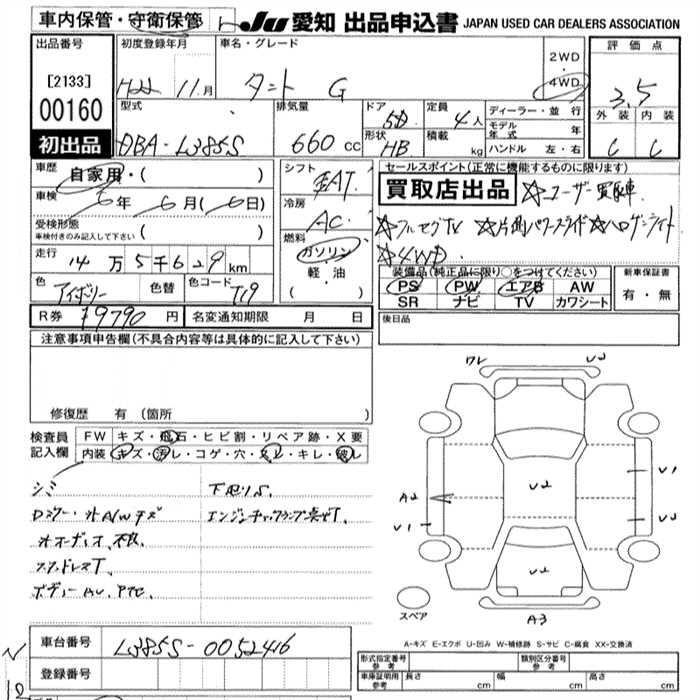 車内保管・守衛保管
JU 愛知 出品申込書 JAPAN USED CAR DEALERS ASSOCIATION
出品番号
[2133]
00160
初出品
初度登録年月
H22 11月
車名・グレード
タント G
2WD
・
4WD
評価点
3.5
外装 内装
C C
型式
DBA-L385S
排気量
660 cc
ドア
5D
形状
HB
定員
4人
積載
kg
ディーラー・並行
モデル年式 年
ハンドル 左・右
車歴
自家用・( )
車検
6年 6月 (6日)
受検形態
車検付きのみ記入して下さい ( )
走行
14万5千629km
色
アイボリー
色替
色コード
T19
シフト
AT
冷房
AC
燃料
ガソリン
軽・油
( ・ )
セールスポイント(正常に機能するものに限ります)
買取店出品 ☆ユーザー買取車
☆フルセグTV ☆片側パワースライド☆ハロゲンライト
☆4WD
装備品(純正品に限り○をつけてください)
PS PW エアB AW
SR ナビ TV カワシート
新車保証書
有・無
R券 ¥9790 円
名変通知期限 月 日
後日品
注意事項申告欄(不具合内容等は具体的に記入して下さい)
修復歴 有 (箇所
検査員記入欄
FW キズ・飛石・ヒビ割・リペア跡・X要
内装 キズ・汚レ・コゲ・穴・スレ・キレ・破レ
シミ
下廻りS
Dミラー・外A/Wキズ
オーディオ、不良
スタッドレスT
ワレ
U2
U2
U1
A2
U1
U2
U2
A3
スペア
A-キズ E-エクボ U-凹み W-補修跡 S-サビ C-腐食 XX-交換済
車台番号
L385S-0052416
登録番号
形式指定番号
参考
類別区分番号
参考
車庫証明用
参考
長さ cm
幅 cm
高さ cm